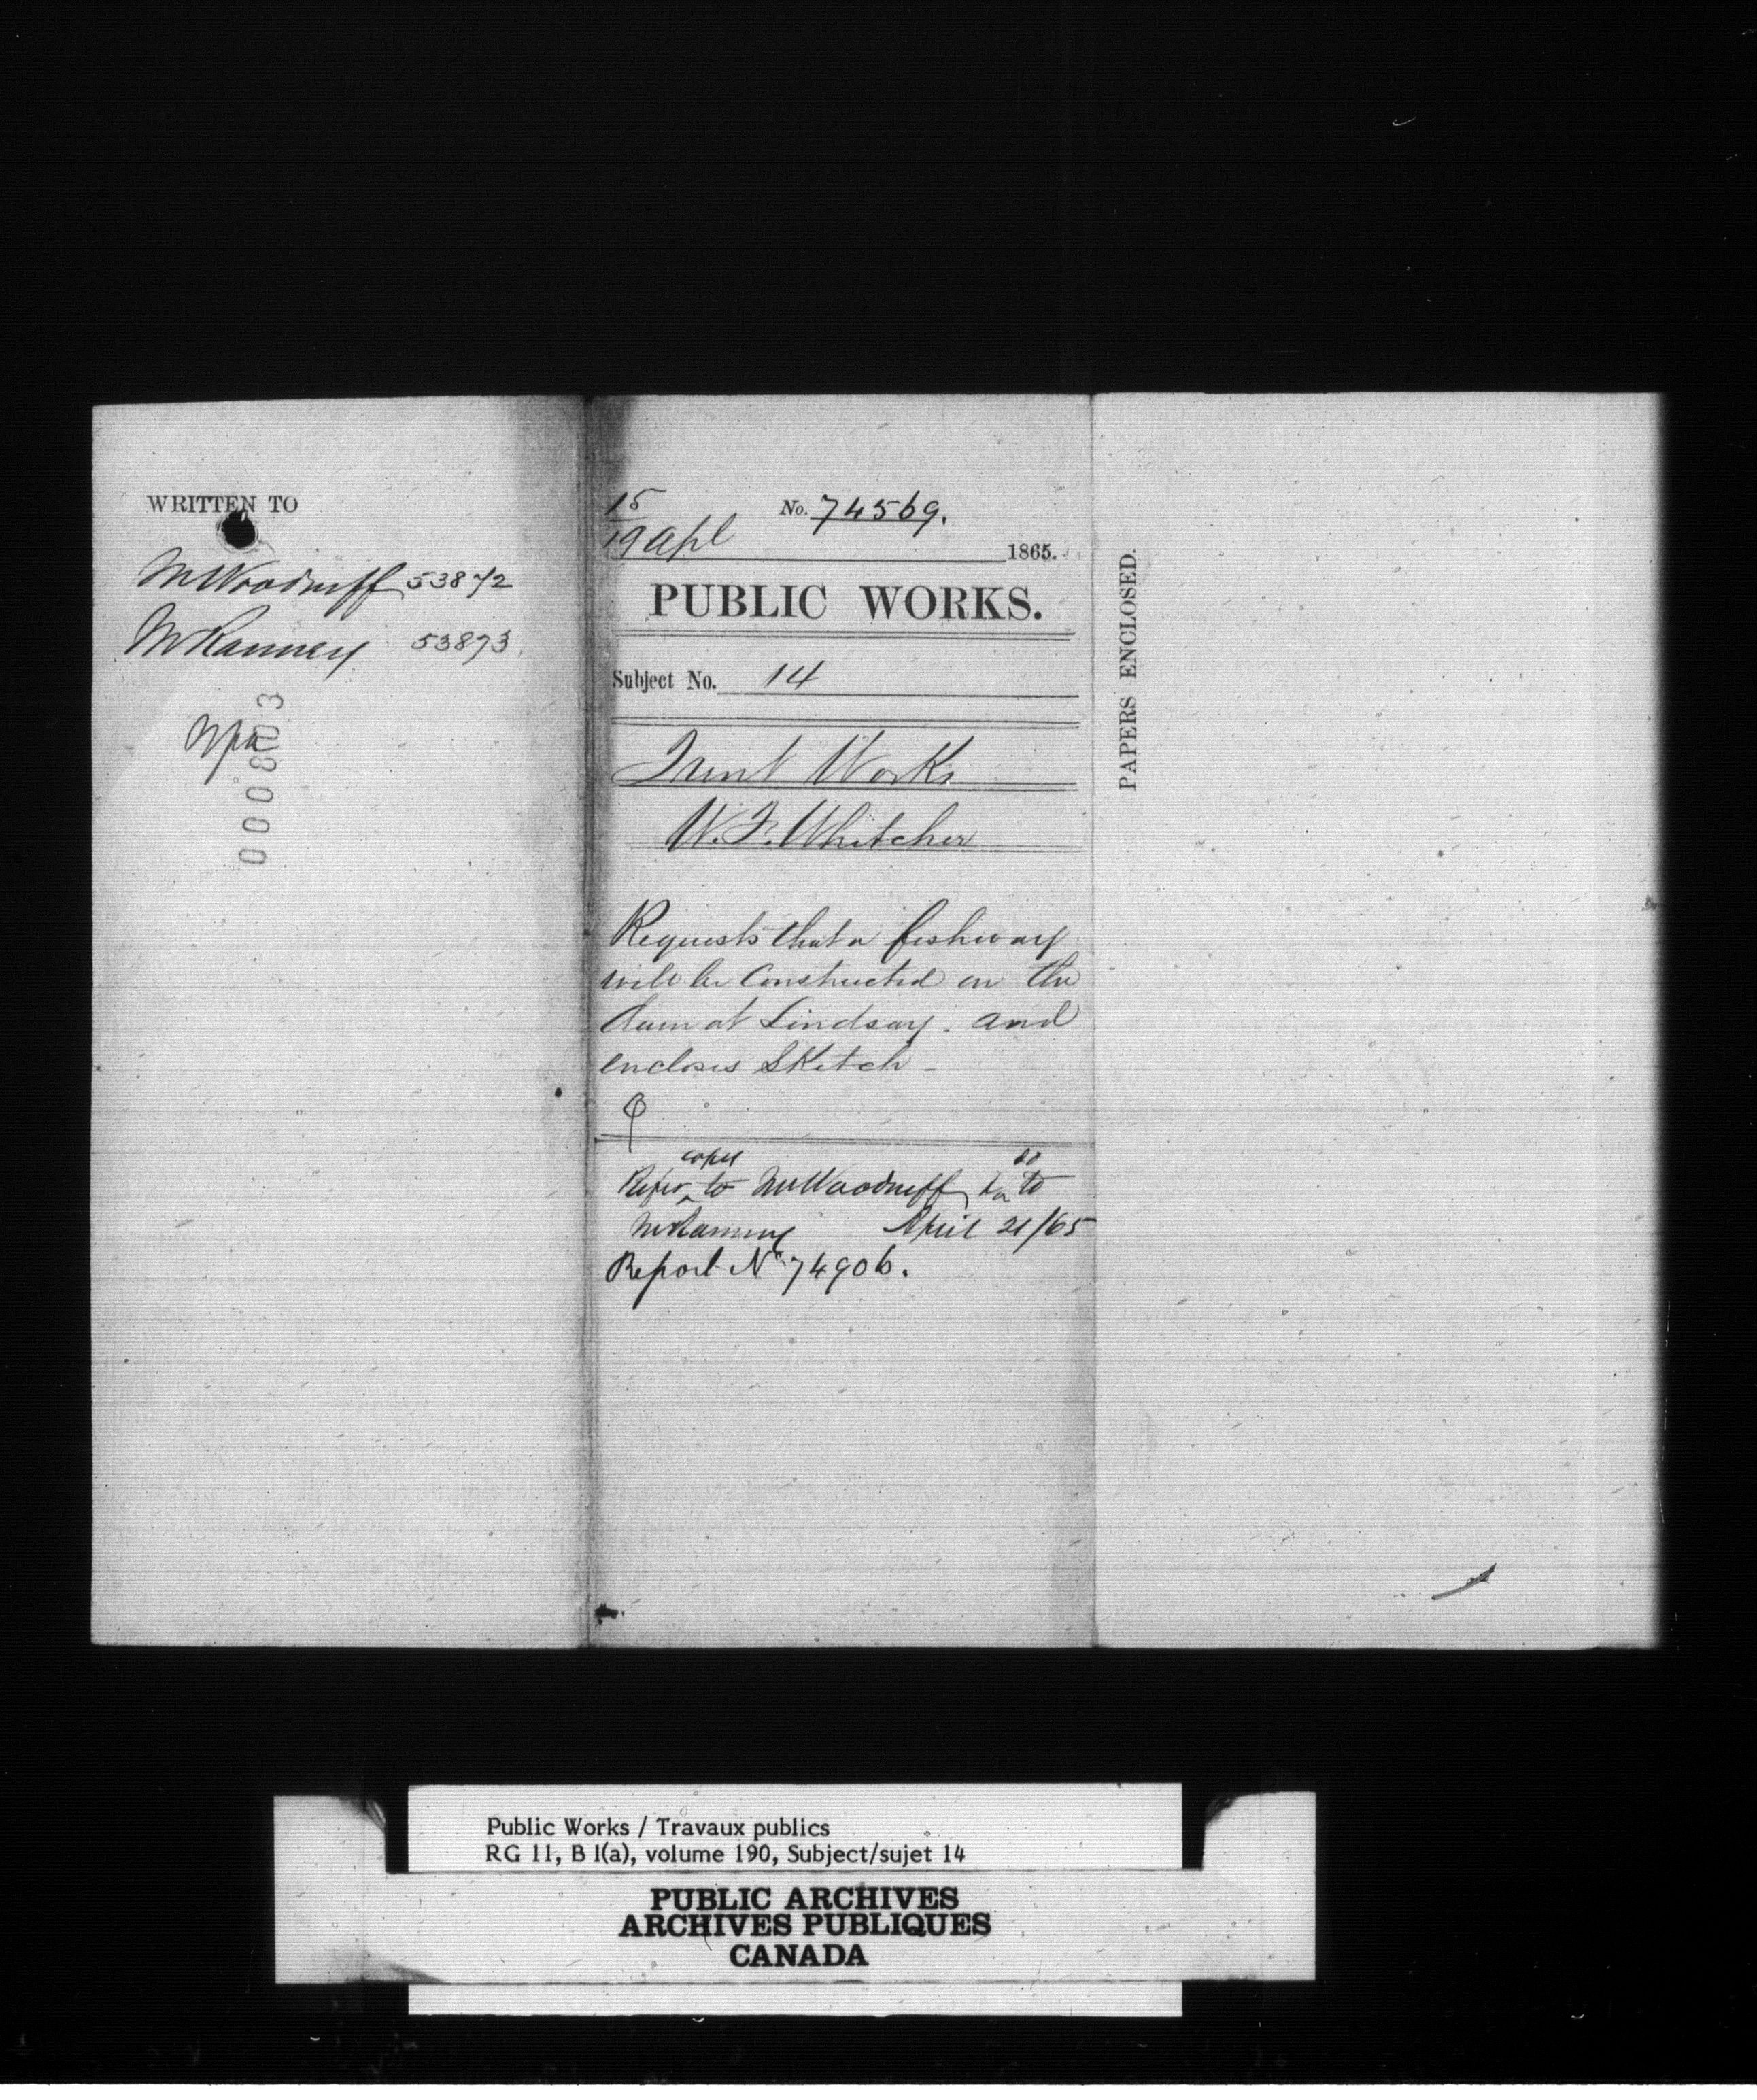 WRITTEN TO
Mr Woodruff 53872
Mr Ranney 53873
0000803
15
No. 74569.
19 Apl 1865.
PUBLIC WORKS.
Subject No. 14
Trent Works
W. F. Whitcher
Requests that a fishway
will be constructed on the
dam at Lindsay. and
encloses Sketch -
copy do
Refer to Mr Woodruff & to
Mr Ranney April 21/65
Report No 74906.
PAPERS ENCLOSED.
Public Works / Travaux publics
RG 11, B 1(a), volume 190, Subject/sujet 14
PUBLIC ARCHIVES
ARCHIVES PUBLIQUES
CANADA